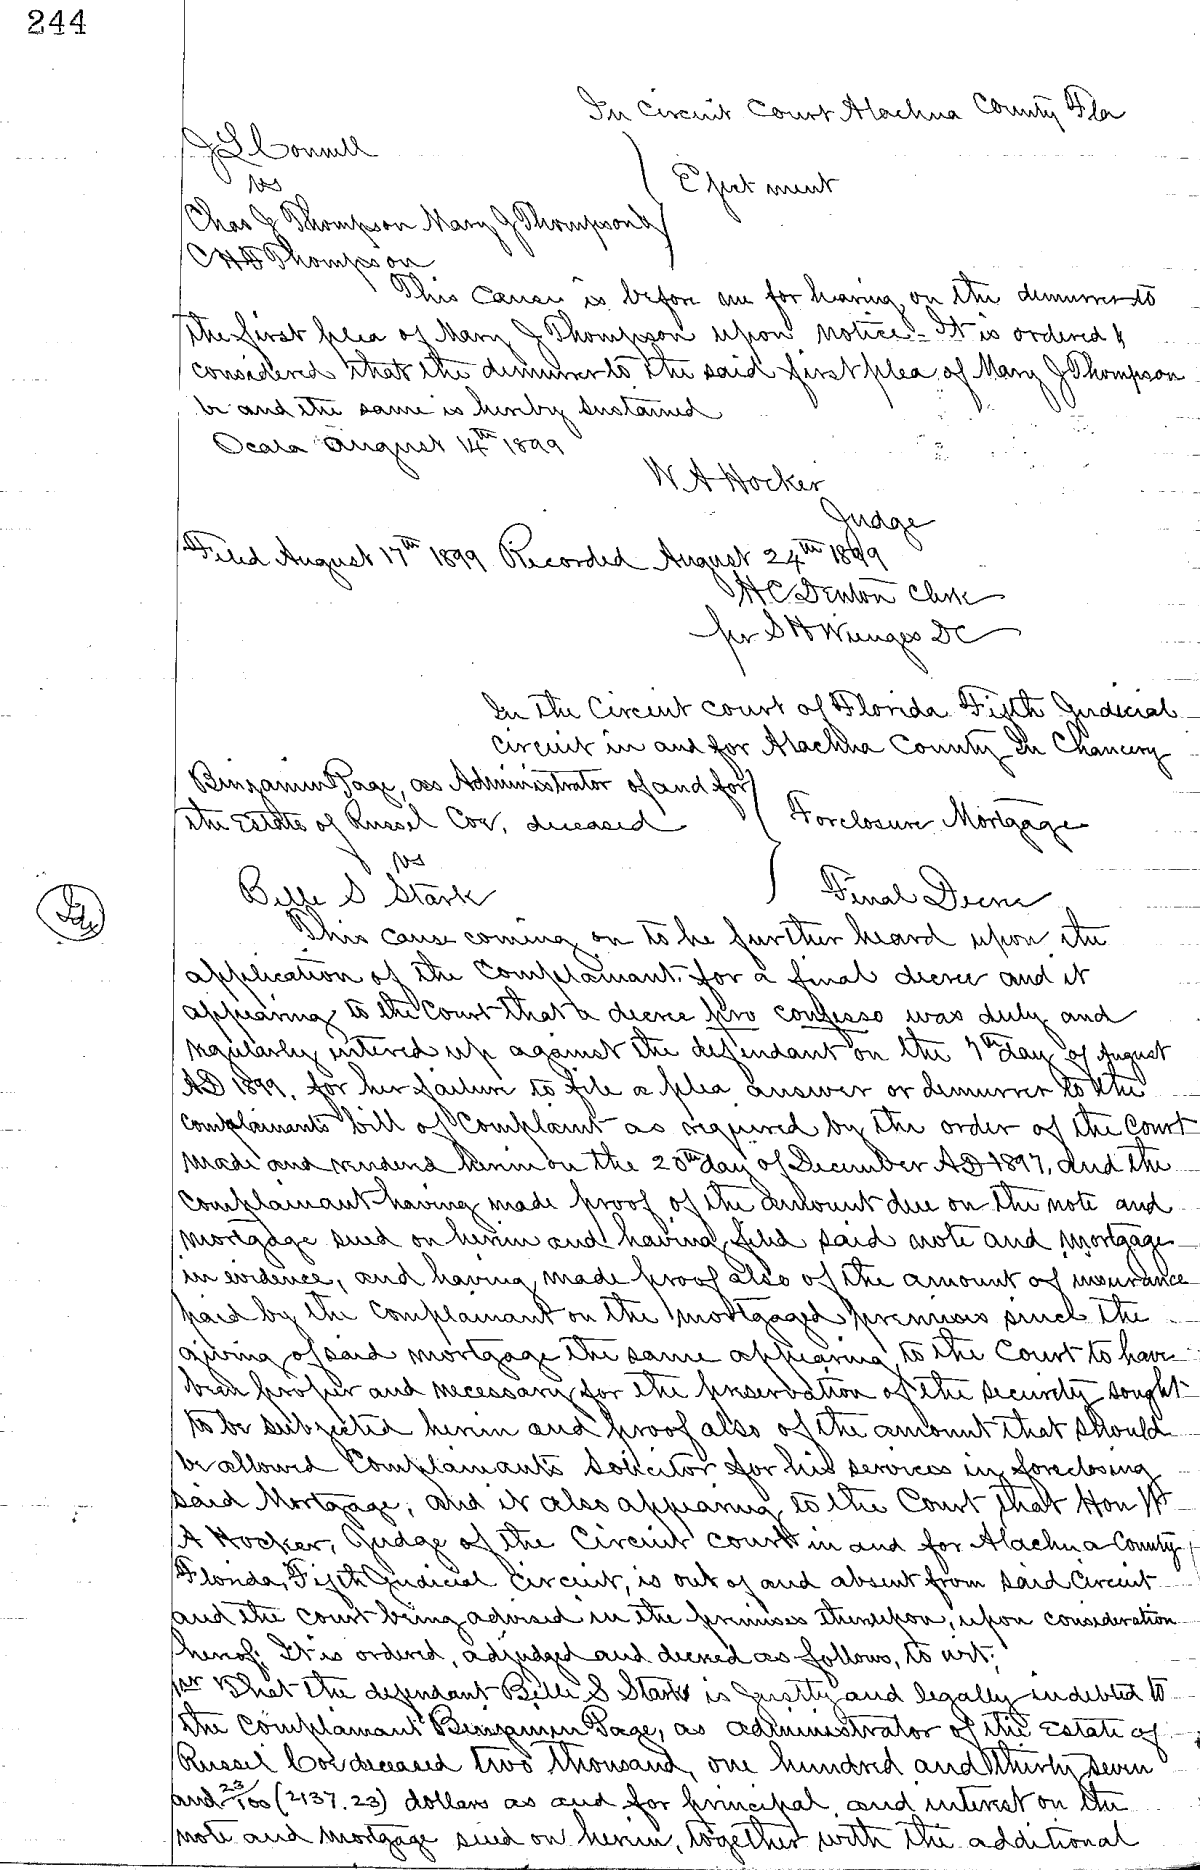 244
In Circuit Court Alachua County Fla
J L Connell
vs
Ejectment
Chas J Thompson Mary J Thompson &
C H F Thompson
This cause is before me for hearing on the demurrer to
the first plea of Mary J Thompson upon notice - It is ordered &
considered that the demurrer to the said first plea of Mary J Thompson
be and the same is hereby sustained
Ocala August 14th 1899
W A Hocker
Judge
Filed August 17th 1899 Recorded August 24th 1899
H C Denton Clerk
per S H Wienges DC
In the Circuit court of Florida Fifth Judicial
circuit in and for Alachua County In Chancery
Benjamin Page, as Administrator of and for
the Estate of Russel Coe, deceased
Foreclosure Mortgage
vs
Belle S Stark
Final Decree
This cause coming on to be further heard upon the
application of the Complainant for a final decree and it
appearing to the Court that a decree pro confesso was duly and
regularly entered up against the defendant on the 7th day of August
AD 1899, for her failure to file a plea answer or demurrer to the
complainants bill of Complaint as required by the order of the Court
made and rendered herein on the 20th day of December AD 1897, and the
Complainant having made proof of the amount due on the note and
mortgage sued on herein and having filed said note and mortgage
in evidence, and having made proof also of the amount of insurance
paid by the Complainant on the mortgaged premises since the
giving of said mortgage the same appearing to the Court to have
been proper and necessary for the preservation of the security sought
to be subjected herein and proof also of the amount that should
be allowed Complainants solicitor for his services in foreclosing
said Mortgage, and it also appearing to the Court that Hon W
A Hocker, Judge of the Circuit court in and for Alachua County
Florida, Fifth Judicial Circuit, is out of and absent from said Circuit
and the court being advised in the premises thereupon, upon consideration
hereof; It is ordered, adjudged and decreed as follows, to wit;
1st That the defendant Belle S Stark is justly and legally indebted to
the Complainant Benjamin Page, as administrator of the Estate of
Russel Coe deceased two thousand, one hundred and thirty seven
and 23/100 (2137.23) dollars as and for principal, and interest on the
note and mortgage sued on herein, together with the additional